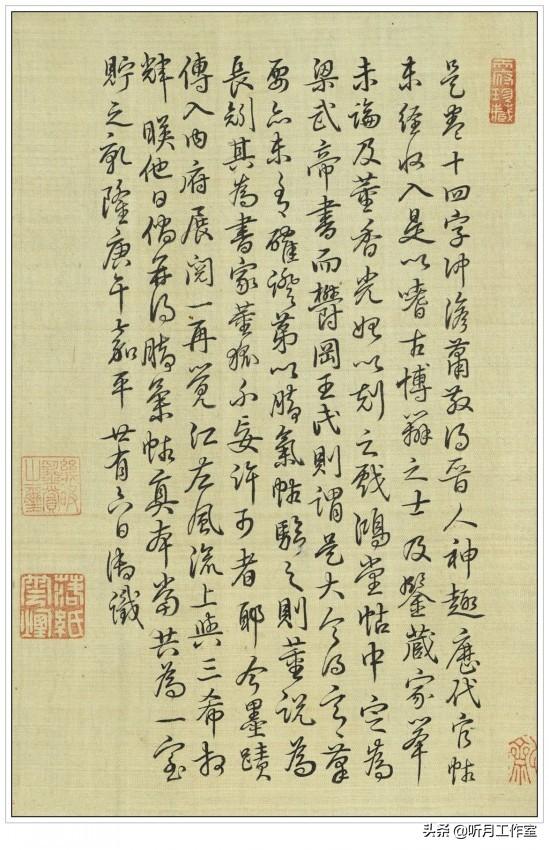 是卷十四字沖澹蕭散得晉人神趣歷代官帖
未經收入是以嗜古博辯之士及鑒藏家率
未論及董香光始以刻之戲鴻堂帖中定為
梁武帝書而鬱岡王氏則謂是大令得意筆
要亦未有確證第以腳氣帖驗之則董說為
長矧其為書家董狐不妄許可者耶今墨蹟
傳入內府展閱一再覺江左風流上與三希相
輝暎他日倘再得腳氣帖真本當共為一室
貯之乾隆庚午嘉平廿有六日御識
落紙雲煙
头条 @听月工作室